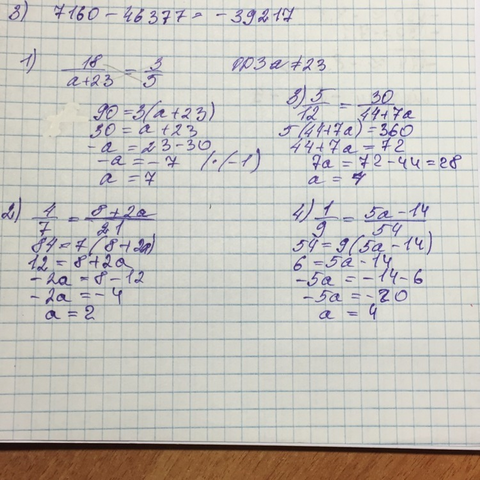 3) 7160 - 46377 = -39217
1) 18/(a+23) = 3/5 ОДЗ a ≠ 23
90 = 3(a+23)
30 = a+23
-a = 23-30
-a = -7 | · (-1)
a = 7
3) 5/12 = 30/(44+7a)
5(44+7a) = 360
44+7a = 72
7a = 72-44 = 28
a = 4
2) 4/7 = (8+2a)/21
84 = 7(8+2a)
12 = 8+2a
-2a = 8-12
-2a = -4
a = 2
4) 1/9 = (5a-14)/54
54 = 9(5a-14)
6 = 5a-14
-5a = -14-6
-5a = -20
a = 4